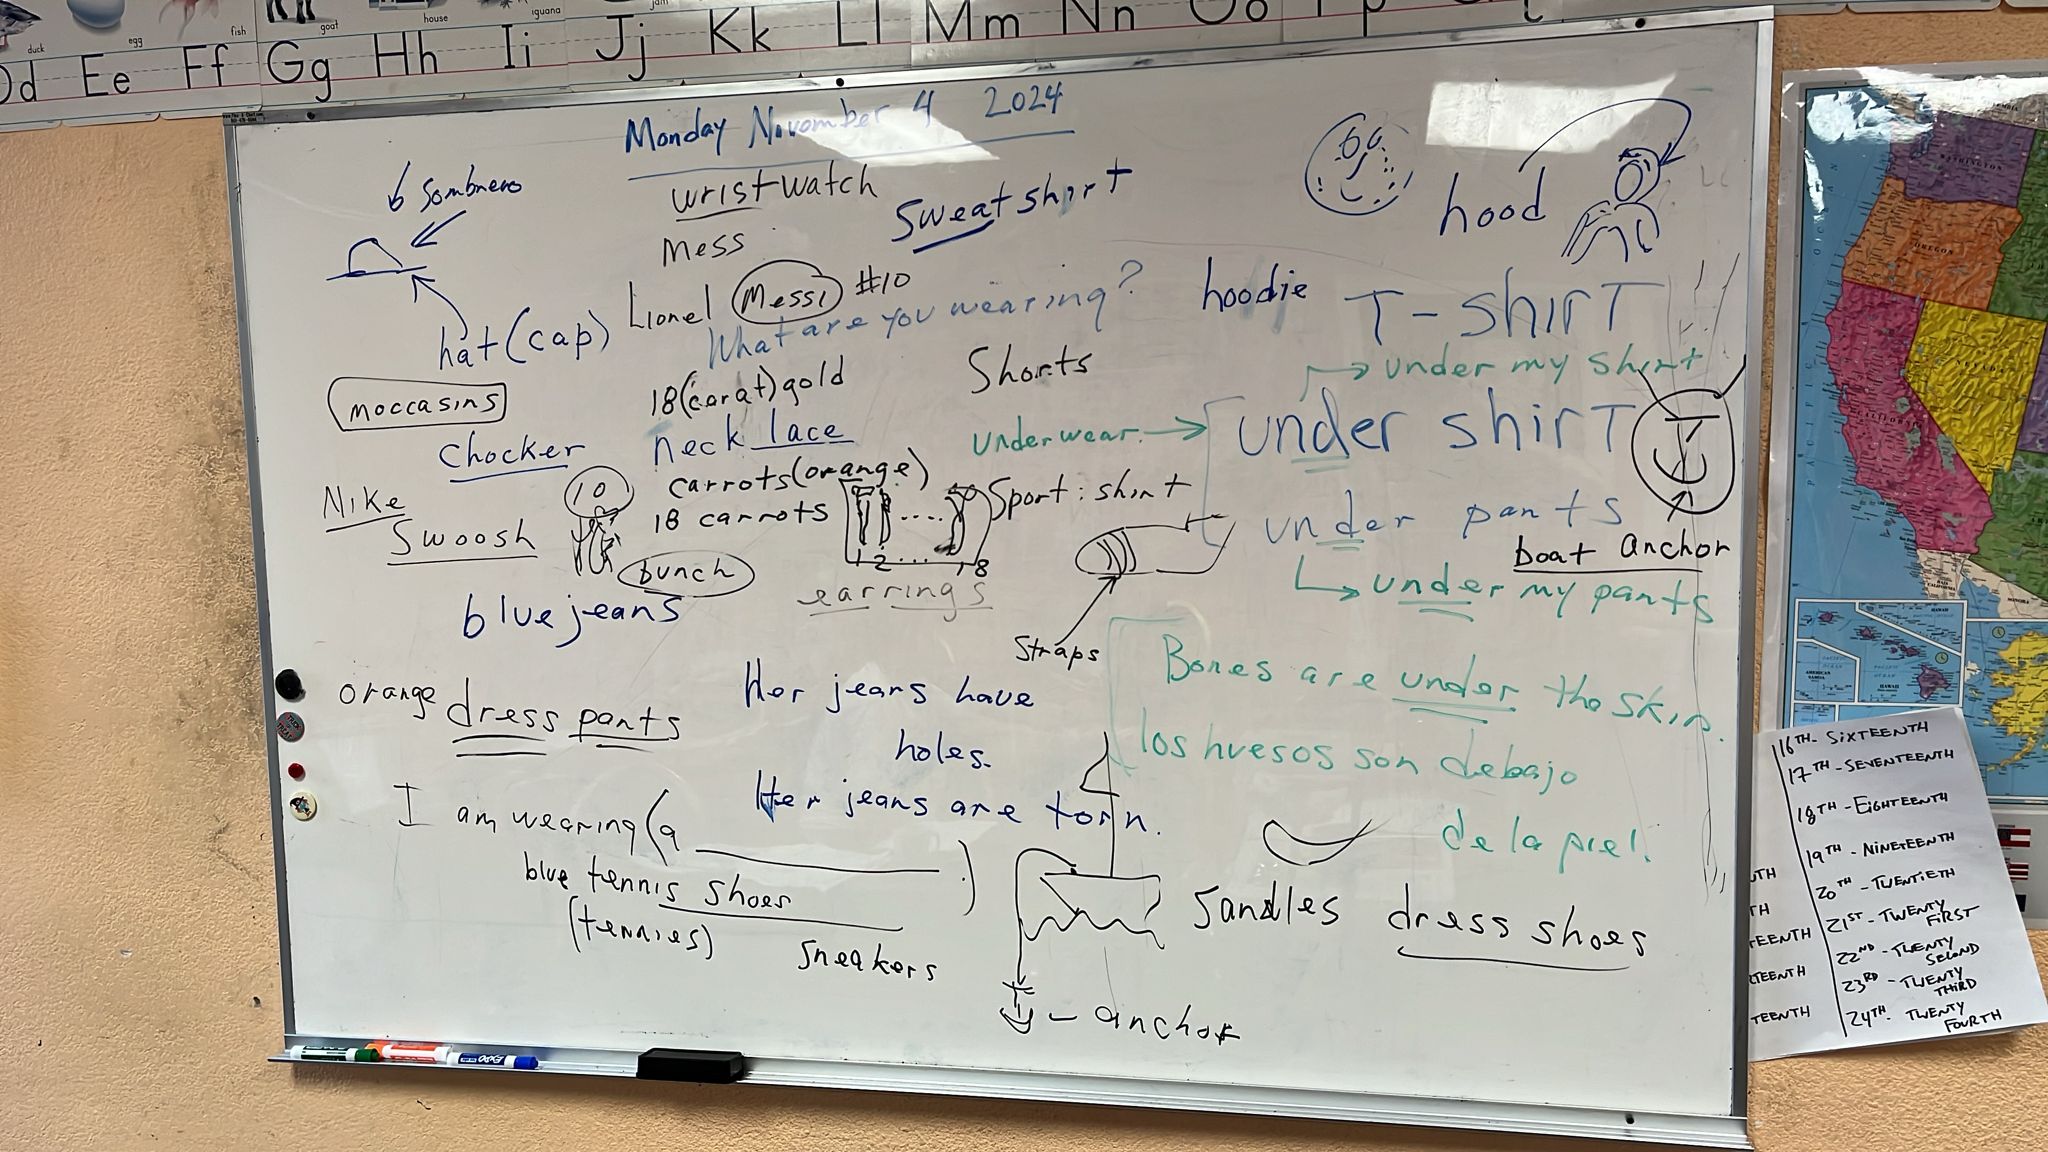 duck
egg
fish
goat
house
iguana
jam
Dd Ee Ff Gg Hh Ii Jj Kk Ll Mm Nn Oo
Monday November 4 2024
Sombrero
wristwatch
Sweatshirt
hood
Mess
Lionel Messi #10
hoodie
T-shirT
What are you wearing?
hat (cap)
18 (carat) gold
Shorts
under my shirt
moccasins
chocker
neck lace
underwear
under shirT
carrots (orange)
Sport: shirt
Nike
Swoosh
10
18 carrots
1 2 ... 18
under pants
boat anchor
bunch
earrings
under my pants
blue jeans
Straps
Bones are under the skin.
orange dress pants
Her jeans have
holes.
los huesos son debajo
de la piel.
Her jeans are torn.
I am wearing (a ________ .)
blue tennis shoes
(tennies)
sneakers
Sandles
dress shoes
anchor
WASHINGTON
OREGON
NEVADA
CALIFORNIA
HAWAII
16TH - SIXTEENTH
17TH - SEVENTEENTH
18TH - EIGHTEENTH
19TH - NINETEENTH
20TH - TWENTIETH
21ST - TWENTY FIRST
22ND - TWENTY SECOND
23RD - TWENTY THIRD
24TH - TWENTY FOURTH